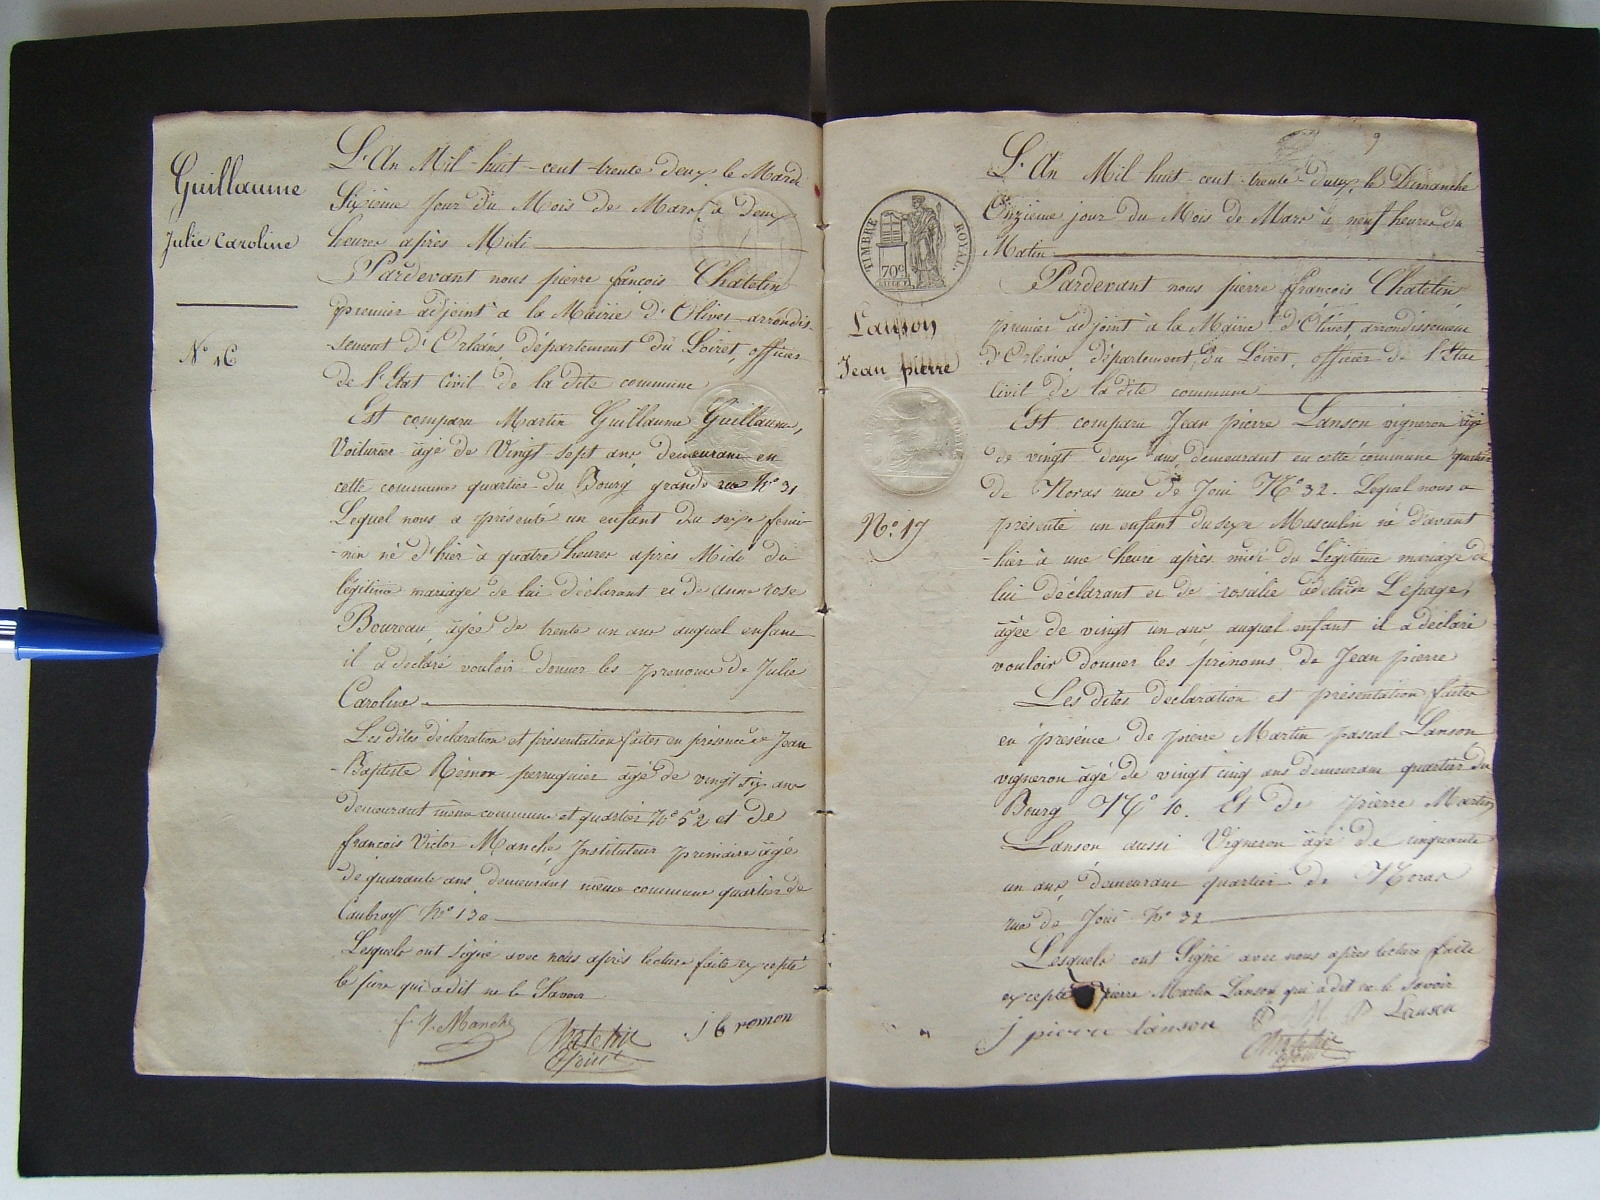 Guillaume
Julie Caroline
N° 16
L'An Mil huit-cent-trente deux le Mardi
Sixieme Jour du Mois de Mars à Deux
heures après Midi
Pardevant nous pierre françois Chatelin
premier adjoint à la Mairie d'Olivet arrondis-
-sement d'Orléans, département du Loiret, officier
de l'Etat Civil de la dite commune
Est comparu Martin Guillaume Guillaume,
Voiturier âgé de Vingt-sept ans, demeurant en
cette commune quartier du Bourg grande rue N° 31
Lequel nous a présenté un enfant du sexe femi-
-nin né d'hier à quatre heures après Midi du
légitime mariage de lui déclarant et de anne rose
Boureau, âgée de trente un ans auquel enfant
il a déclaré vouloir donner les prenoms de Julie
Caroline
Les dites déclaration et présentation faites en présence de Jean
-Baptiste Rémon perruquier âgé de vingt six ans
demeurant même commune et quartier N° 52 et de
françois Victor Manche, Instituteur primaire âgé
de quarante ans, demeurant même commune quartier de
N° 130
Lesquels ont signé avec nous après lecture faite excepté
le père qui a dit ne le Savoir
f. V. Manche
Chatelin
adjoint
J b romon
9
TIMBRE ROYAL
70c
Lanson
Jean pierre
N° 17
L'An Mil huit-cent-trente-deux, le Dimanche
Onzième jour du Mois de Mars à neuf heures du
Matin
Pardevant nous pierre françois Chatelin,
premier adjoint à la Mairie d'Olivet, arrondissement
d'Orléans, département du Loiret, officier de l'Etat
Civil de la dite commune
Est comparu Jean pierre Lanson vigneron âgé
de vingt deux ans, demeurant en cette commune quartier
de Noras rue de Joui N° 32. Lequel nous a
présenté un enfant du sexe Masculin né d'avant
-hier à une heure après midi du Légitime mariage de
lui déclarant et de rosalie adelaide Lepage,
âgée de vingt un ans, auquel enfant il a déclaré
vouloir donner les prénoms de Jean pierre
Les dites déclaration et présentation faites
en présence de pierre Martin pascal Lanson
vigneron âgé de vingt cinq ans demeurant quartier du
Bourg N° 10. Et de pierre Martin
Lanson aussi Vigneron âgé de cinquante
un ans, demeurant quartier de Noras
rue de Joui N° 32
Lesquels ont Signé avec nous après lecture faite
excepté pierre Martin Lanson qui a dit ne le Savoir
J pierre lanson P M P Lanson
Chatelin
adjoint